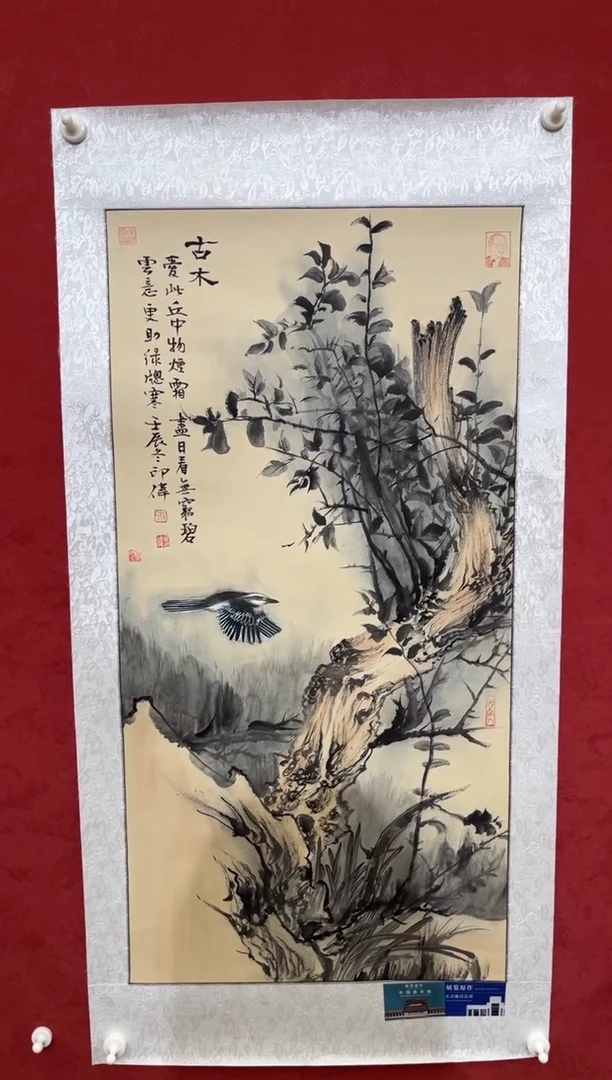 古木
愛此丘中物煙霜盡日看無窮碧
雲意更助緑牕寒壬辰冬印偉
中国美术馆
展览原作